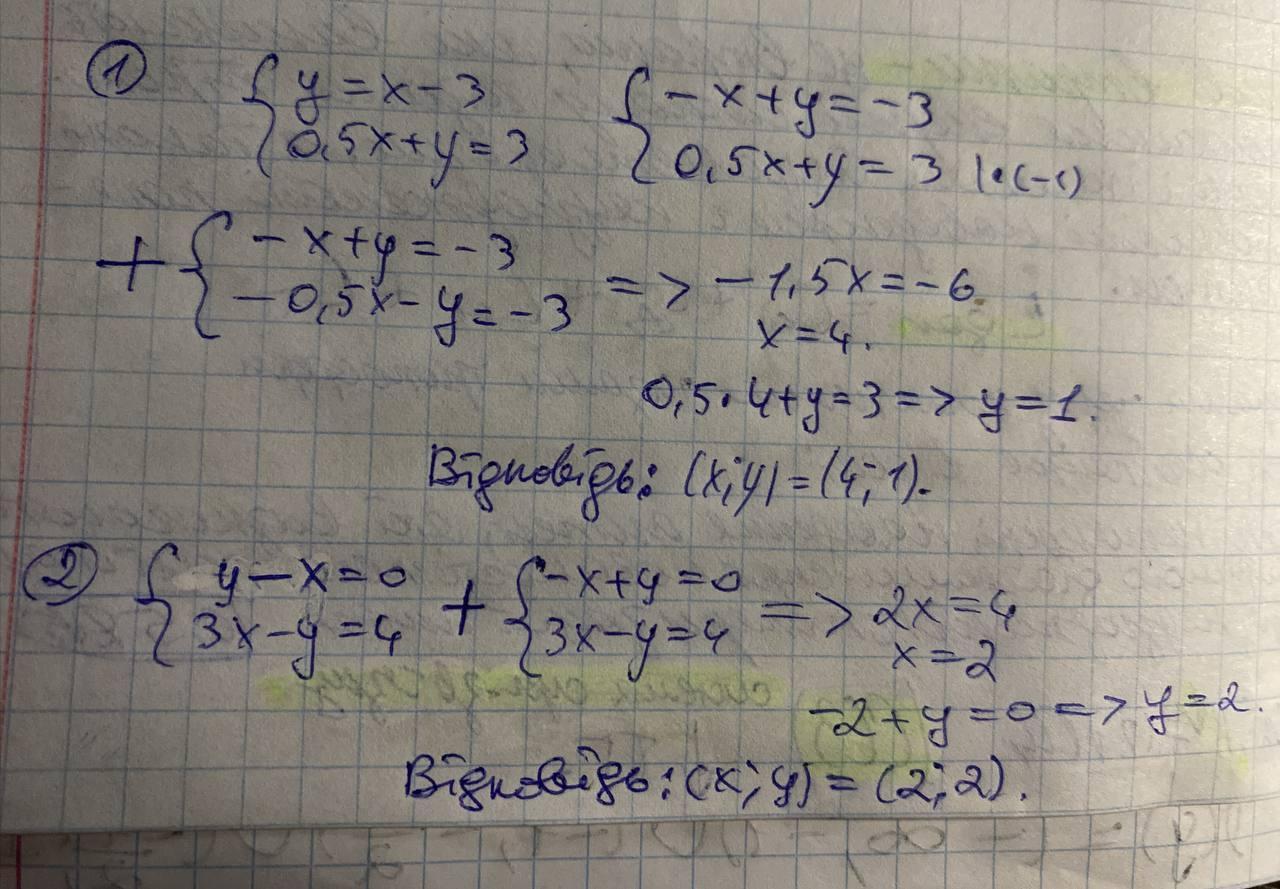 ① { y = x - 3 { -x + y = -3
0,5x + y = 3 0,5x + y = 3 |·(-1)
+ { -x + y = -3
-0,5x - y = -3 => -1,5x = -6
x = 4.
0,5·4 + y = 3 => y = 1.
Відповідь: (x; y) = (4; 1).
② { y - x = 0 + { -x + y = 0 => 2x = 4
3x - y = 4 3x - y = 4
x = 2
-2 + y = 0 => y = 2.
Відповідь: (x; y) = (2; 2).